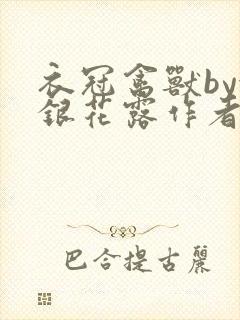 衣冠禽獸by
銀花露作者
巴合提古麗